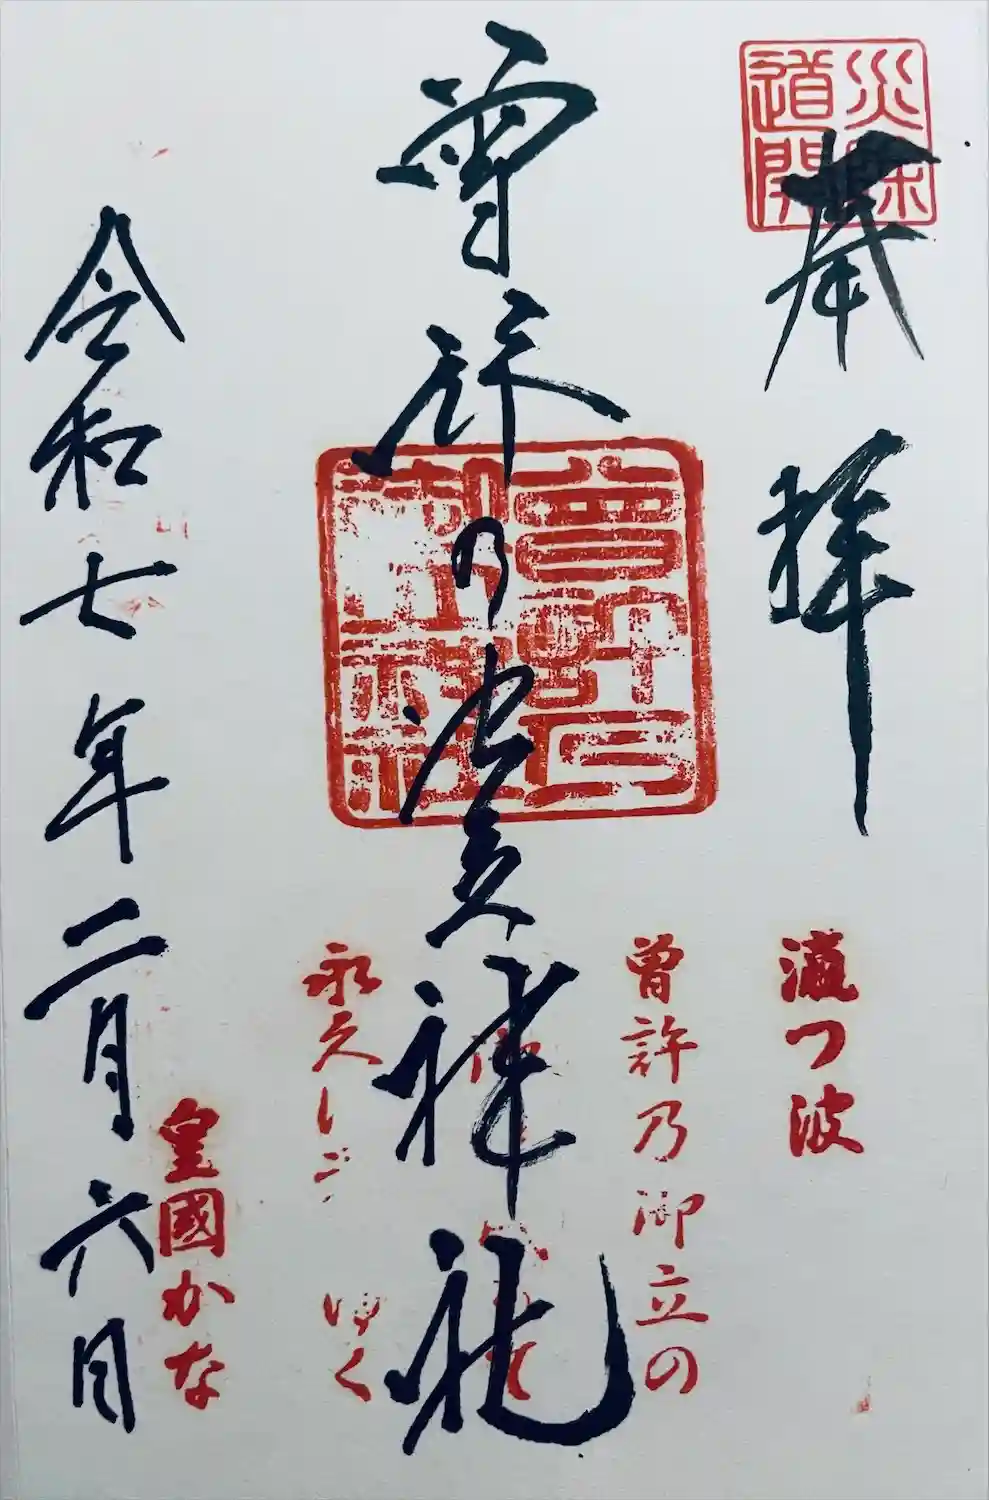 災除道開
奉拝
曽許乃御立神社
曽許乃御立神社
瀛つ波
曽許乃御立の
永久し
ゆく
皇國かな
令和七年二月六日